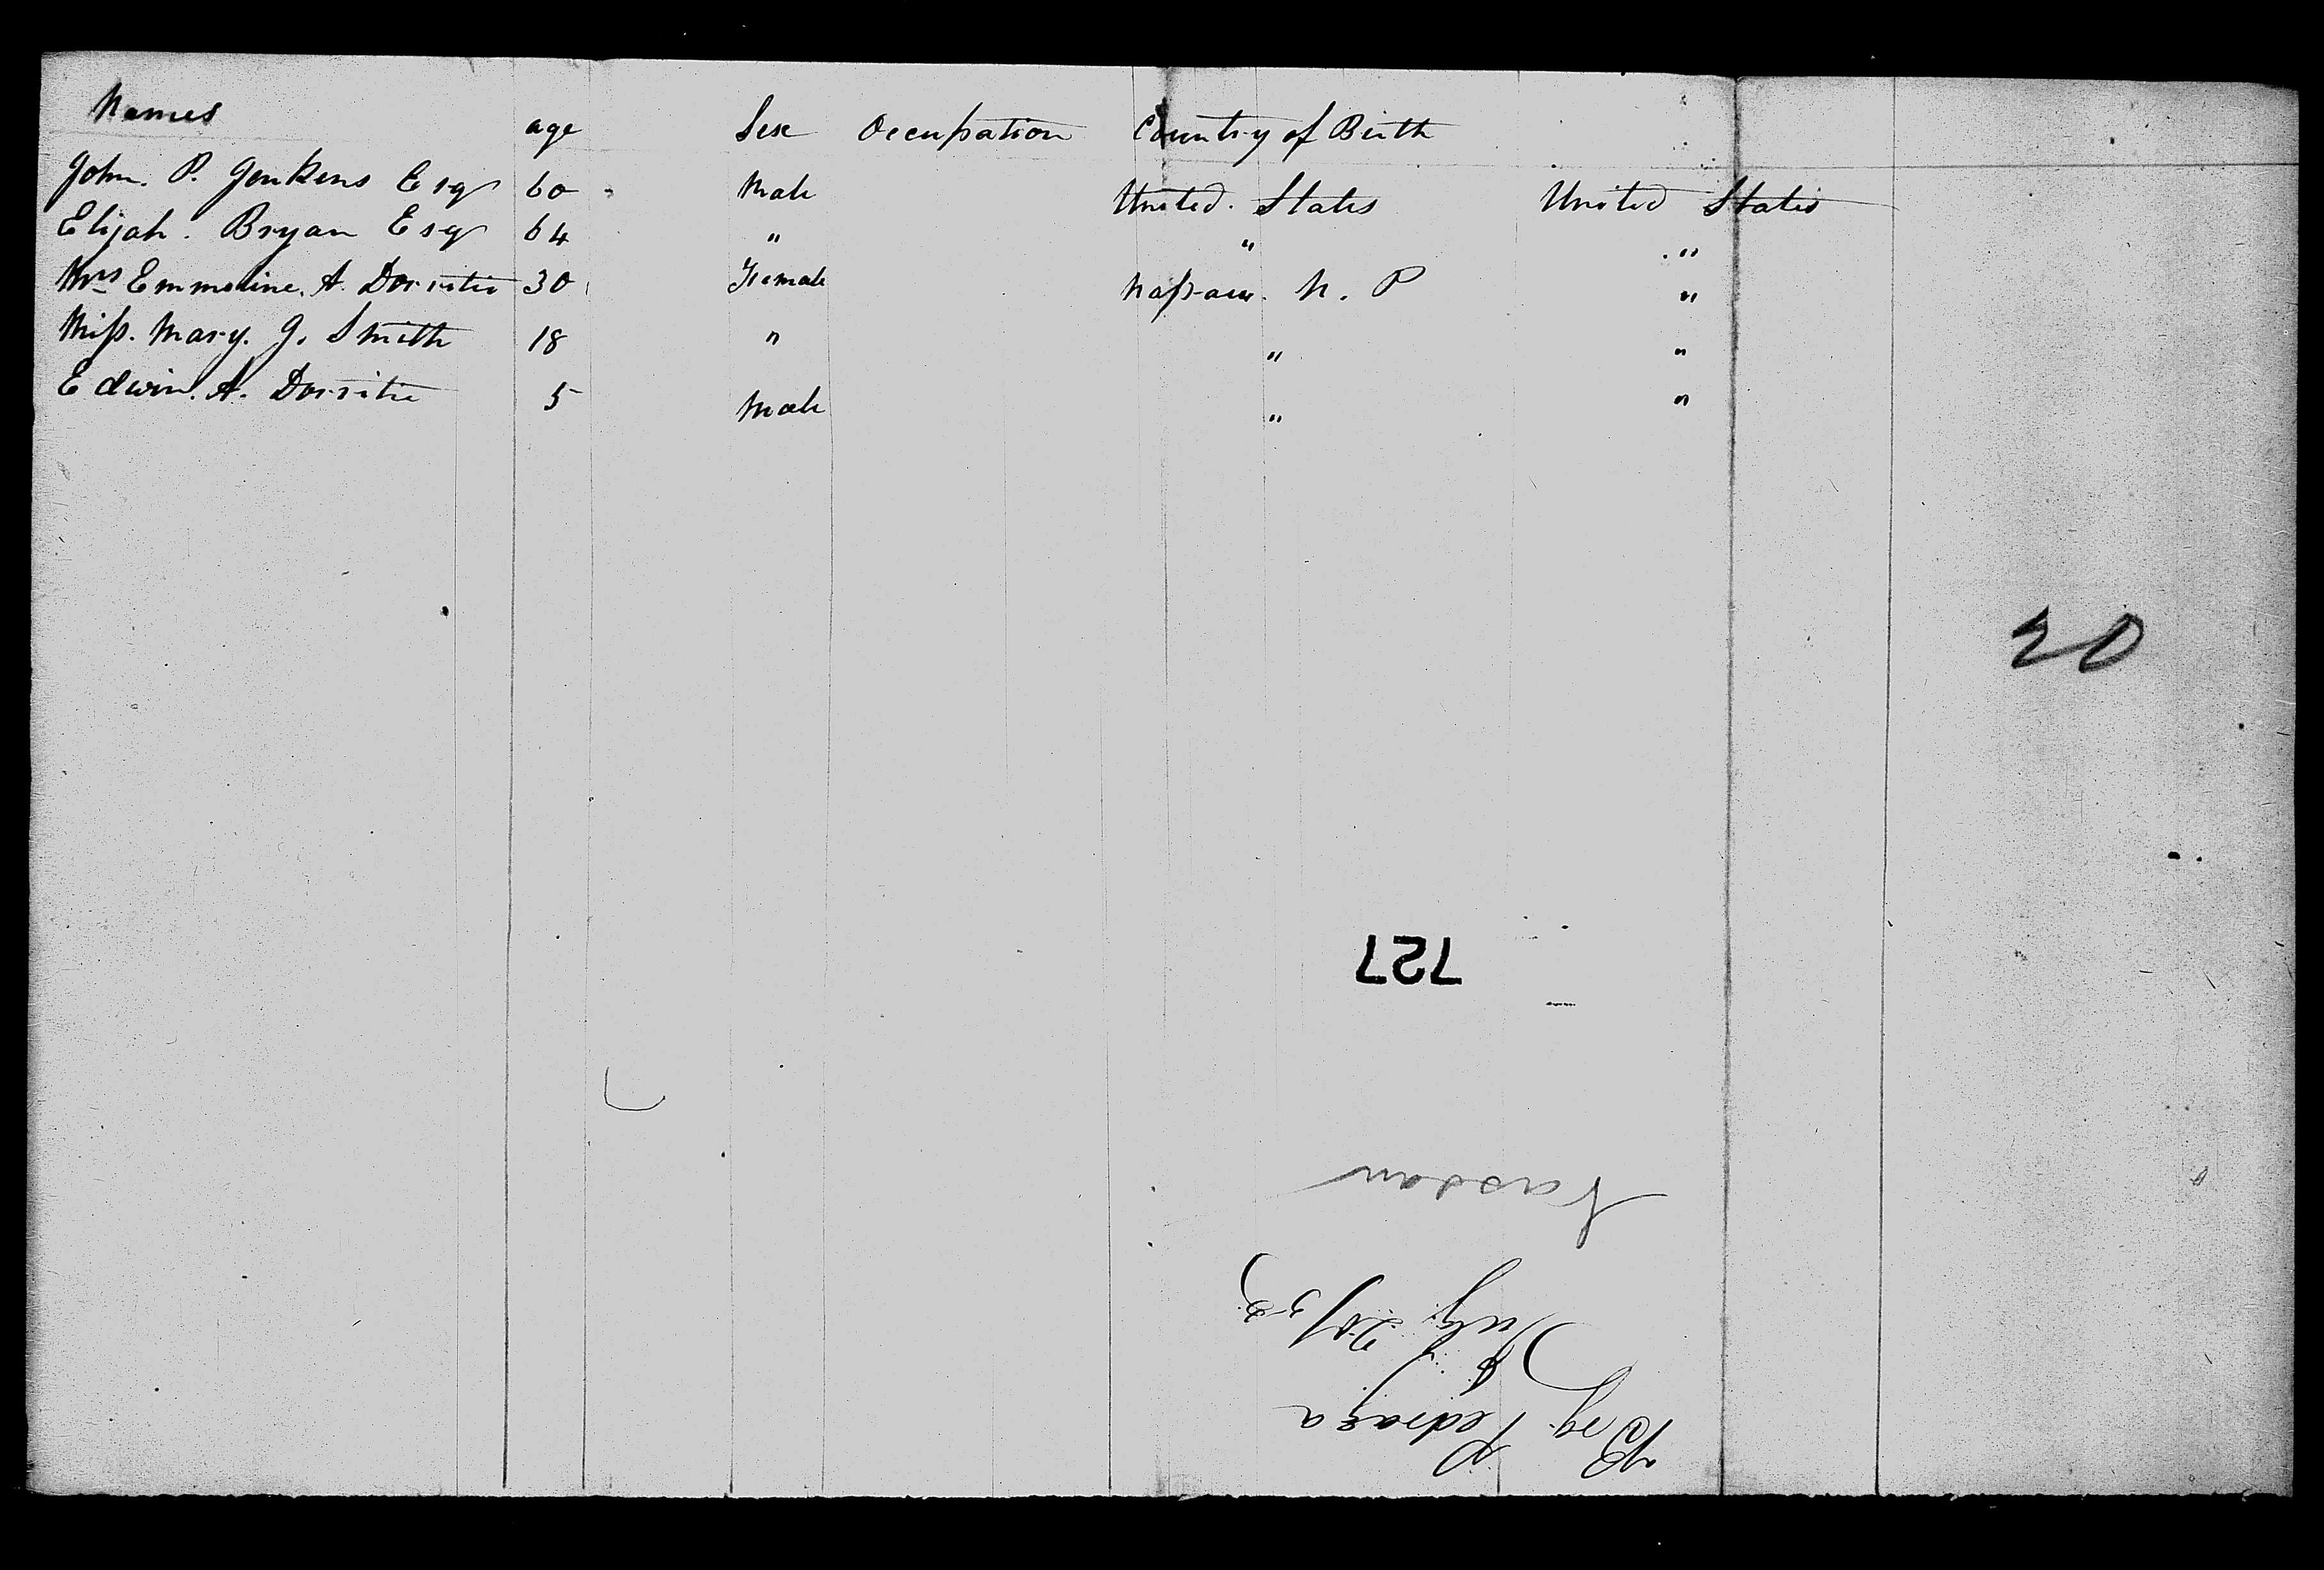 Names age Sex Occupation Country of Birth
John. P. Jenkens Esq 60 Male United. States United States
Elijah. Bryan Esq 64 " " "
Mrs Emmeline. A. Female 30 Nassau. N. P "
Miss. Mary. J. Smith 18 " " "
Edwin. A. 5 Male " "
20
727
Nassau
July 20/52
Brig Pedraza